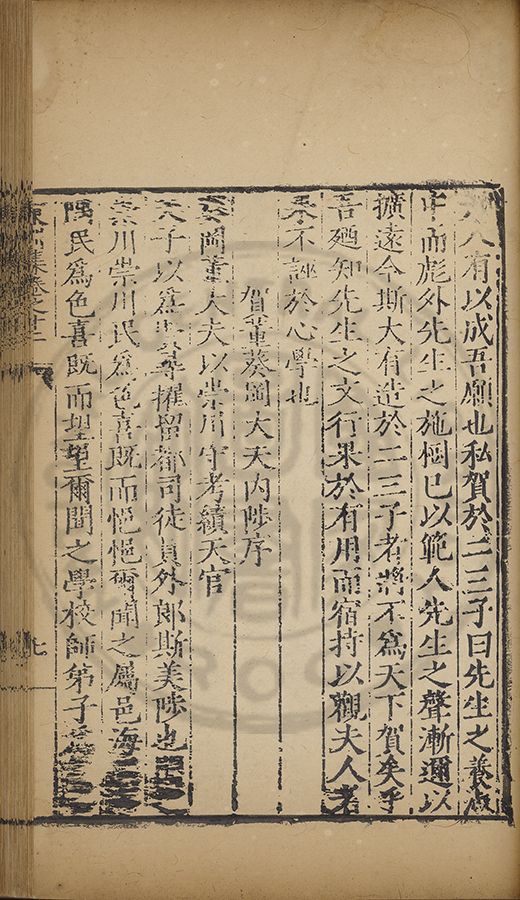 人有以成吾願也私賀於二三子曰先生之養貞
中而彪外先生之施梱已以範人先生之聲漸邇以
擴遠今斯大有造於二三子者將不為天下賀矣乎
吾廼知先生之文行果於有用而宿持以觀夫人者
不誣於心學也
賀董葵岡大夫內陟序
葵岡董大夫以崇川守考績天官
天子以為擢留都司徒員外郎斯美陟也
崇川崇川民為色喜既而悒悒爾聞之屬邑海
民為色喜既而望望爾聞之學校師第子
集卷之十二
七